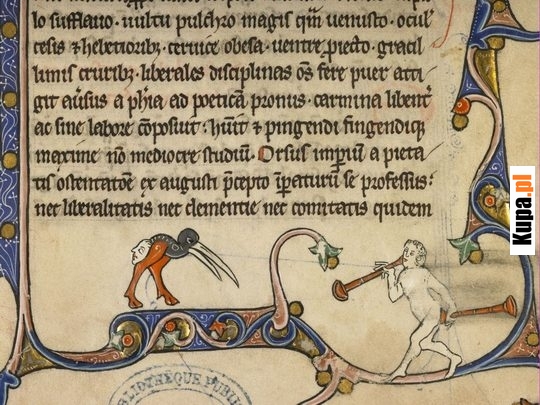 lo sufflauo · uultu pulchro magis qm̄ uenusto · ocul'
cesis ⁊ hebetioribꝫ · ceruice obesa · uentre piecto · gracil
limis cruribꝫ · liberales disciplinas os̄ fere puer atti
git aūsus a phīa ad poeticā pronus · carmina libent'
ac sine labore cōposuit · hūit ⁊ pingendi fingendiqꝫ
maxime nō mediocre studiū · Orsus impiū a pieta
tis ostentatōe ex augusti p̄cepto īpaturū se professus:
nec liberalitatis nec clementie nec comitatis quidem
BIBLIOTHÈQUE PUBLI
Kupa.pl